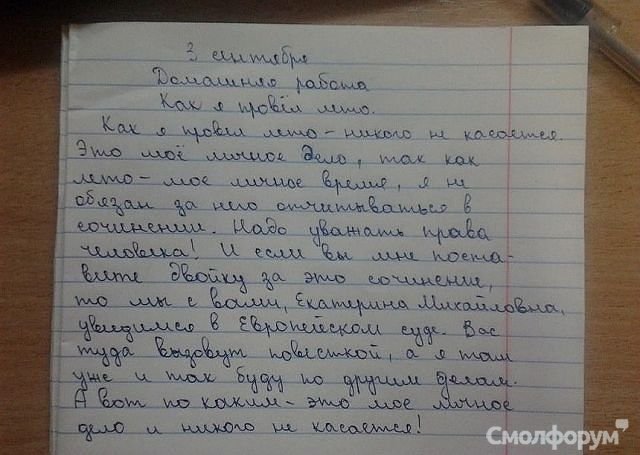 3 сентября
Домашняя работа
Как я провёл лето.
Как я провел лето – никого не касается.
Это моё личное дело, так как
лето – мое личное время, я не
обязан за него отчитываться в
сочинении. Надо уважать права
человека! И если вы мне поста-
вите двойку за это сочинение,
то мы с вами, Екатерина Михайловна,
увидимся в Европейском суде. Вас
туда вызовут повесткой, а я там
уже и так буду по другим делам.
А вот по каким – это мое личное
дело и никого не касается!
СМОЛФОРУМ